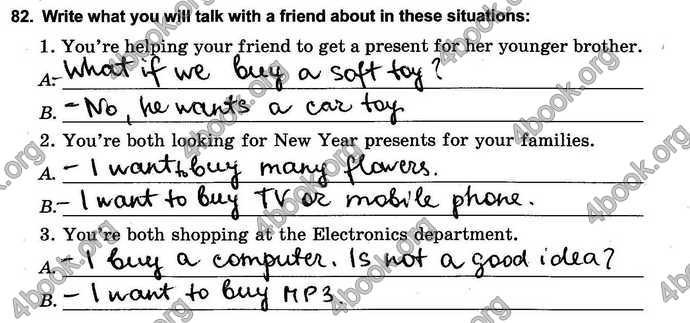 82. Write what you will talk with a friend about in these situations:
1. You're helping your friend to get a present for her younger brother.
A.- What if we buy a soft toy?
B. - No, he wants a car toy.
2. You're both looking for New Year presents for your families.
A. - I want to buy many flowers.
B.- I want to buy TV or mobile phone.
3. You're both shopping at the Electronics department.
A.- I buy a computer. Is not a good idea?
B. - I want to buy MP3.
4book.org